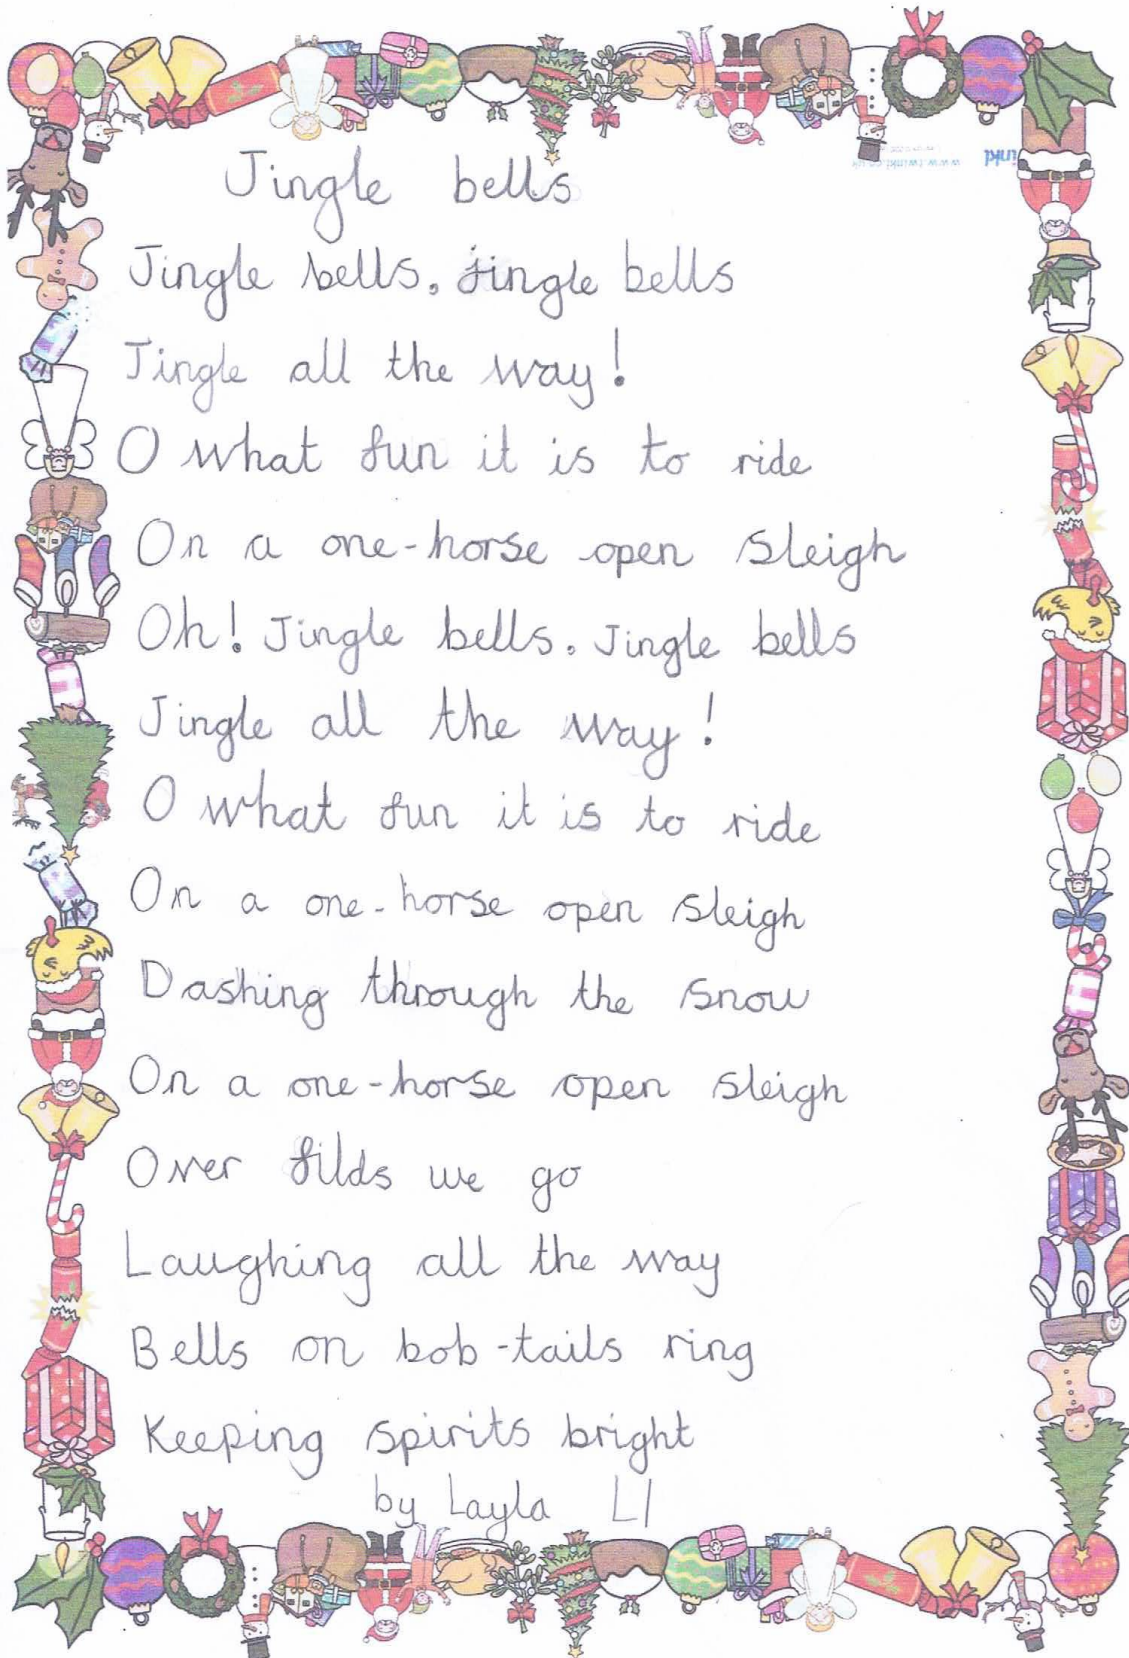 Jingle bells
Jingle bells, jingle bells
Jingle all the way!
O what fun it is to ride
On a one-horse open sleigh
Oh! Jingle bells, Jingle bells
Jingle all the way!
O what fun it is to ride
On a one-horse open sleigh
Dashing through the snow
On a one-horse open sleigh
Over filds we go
Laughing all the way
Bells on bob-tails ring
Keeping spirits bright
by Layla L1
www.twinkl.co.uk